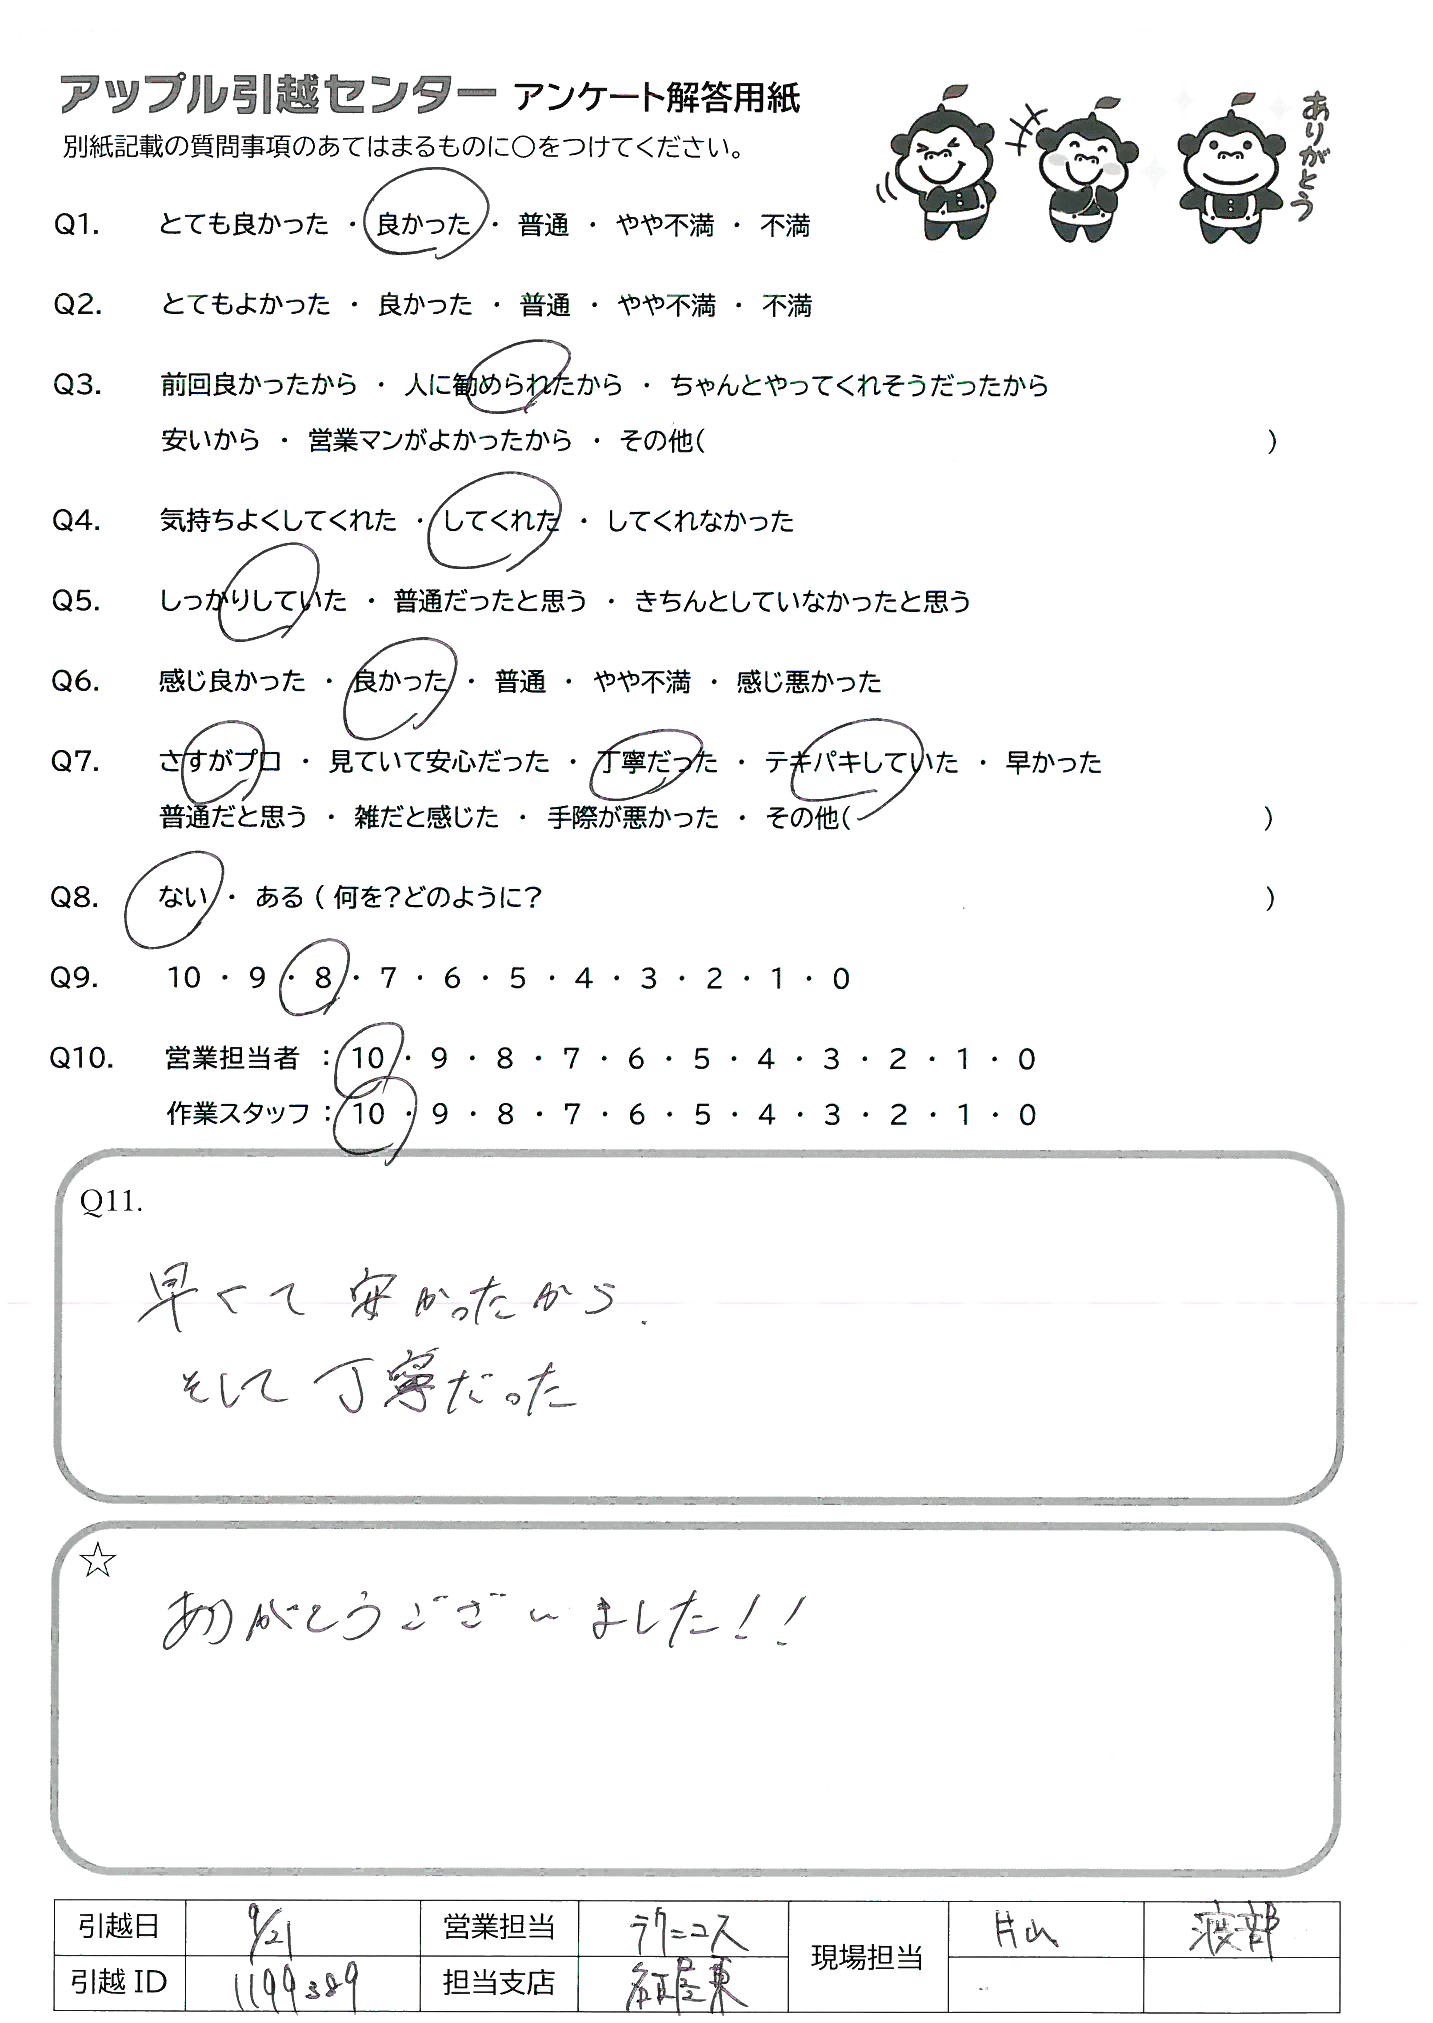 アップル引越センター アンケート解答用紙
別紙記載の質問事項のあてはまるものに○をつけてください。
ありがとう
Q1. とても良かった ・ 良かった ・ 普通 ・ やや不満 ・ 不満
Q2. とてもよかった ・ 良かった ・ 普通 ・ やや不満 ・ 不満
Q3. 前回良かったから ・ 人に勧められたから ・ ちゃんとやってくれそうだったから
安いから ・ 営業マンがよかったから ・ その他( )
Q4. 気持ちよくしてくれた ・ してくれた ・ してくれなかった
Q5. しっかりしていた ・ 普通だったと思う ・ きちんとしていなかったと思う
Q6. 感じ良かった ・ 良かった ・ 普通 ・ やや不満 ・ 感じ悪かった
Q7. さすがプロ ・ 見ていて安心だった ・ 丁寧だった ・ テキパキしていた ・ 早かった
普通だと思う ・ 雑だと感じた ・ 手際が悪かった ・ その他( )
Q8. ない ・ ある ( 何を?どのように? )
Q9. 10 ・ 9 ・ 8 ・ 7 ・ 6 ・ 5 ・ 4 ・ 3 ・ 2 ・ 1 ・ 0
Q10. 営業担当者 : 10 ・ 9 ・ 8 ・ 7 ・ 6 ・ 5 ・ 4 ・ 3 ・ 2 ・ 1 ・ 0
作業スタッフ : 10 ・ 9 ・ 8 ・ 7 ・ 6 ・ 5 ・ 4 ・ 3 ・ 2 ・ 1 ・ 0
Q11.
早くて 安かったから.
そして 丁寧だった
☆
ありがとうございました!!
引越日 9/21 営業担当 ラクニコス 現場担当 片山 渡部
引越ID 1199389 担当支店 名古屋東